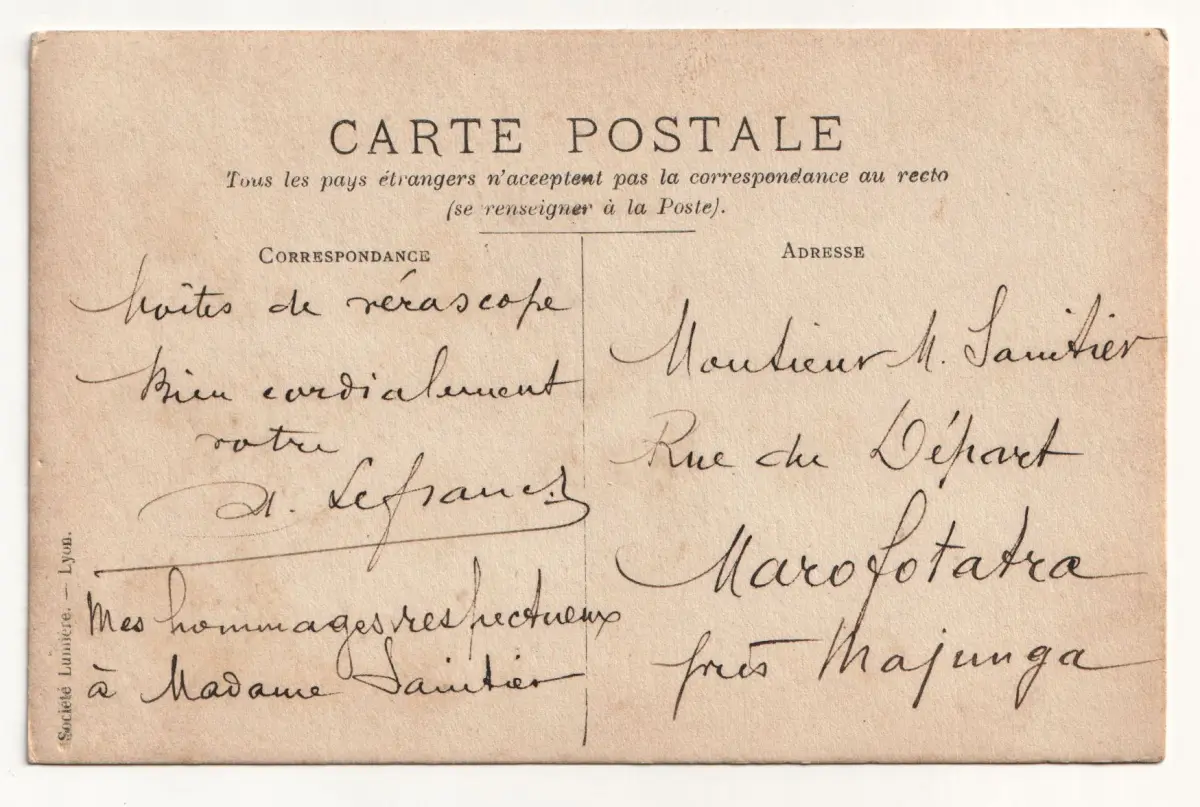 CARTE POSTALE
Tous les pays étrangers n'acceptent pas la correspondance au recto
(se renseigner à la Poste).
CORRESPONDANCE
boîtes de vérascope
Bien cordialement
votre
A. Lefranc
Mes hommages respectueux
à Madame Sanitier
ADRESSE
Monsieur M. Sanitier
Rue du Départ
Marofototra
près Majunga
Société Lumière. — Lyon.